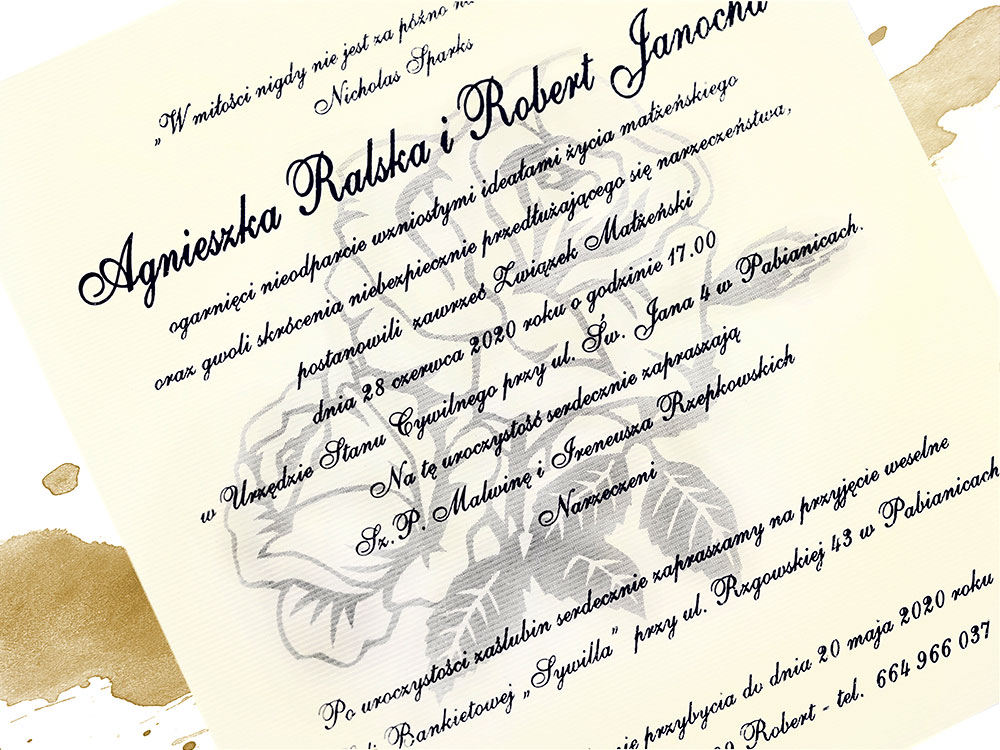 „W miłości nigdy nie jest za późno na
Nicholas Sparks
Agnieszka Ralska i Robert Janocha
ogarnięci nieodparcie wzniosłymi ideałami życia małżeńskiego
oraz gwoli skrócenia niebezpiecznie przedłużającego się narzeczeństwa,
postanowili zawrzeć Związek Małżeński
dnia 28 czerwca 2020 roku o godzinie 17.00
w Urzędzie Stanu Cywilnego przy ul. Św. Jana 4 w Pabianicach.
Na tę uroczystość serdecznie zapraszają
Sz.P. Malwinę i Ireneusza Rzepkowskich
Narzeczeni
Po uroczystości zaślubin serdecznie zapraszamy na przyjęcie weselne
Bankietowej „Sywilla" przy ul. Rzgowskiej 43 w Pabianicach
przybycia do dnia 20 maja 2020 roku
Robert - tel. 664 966 037